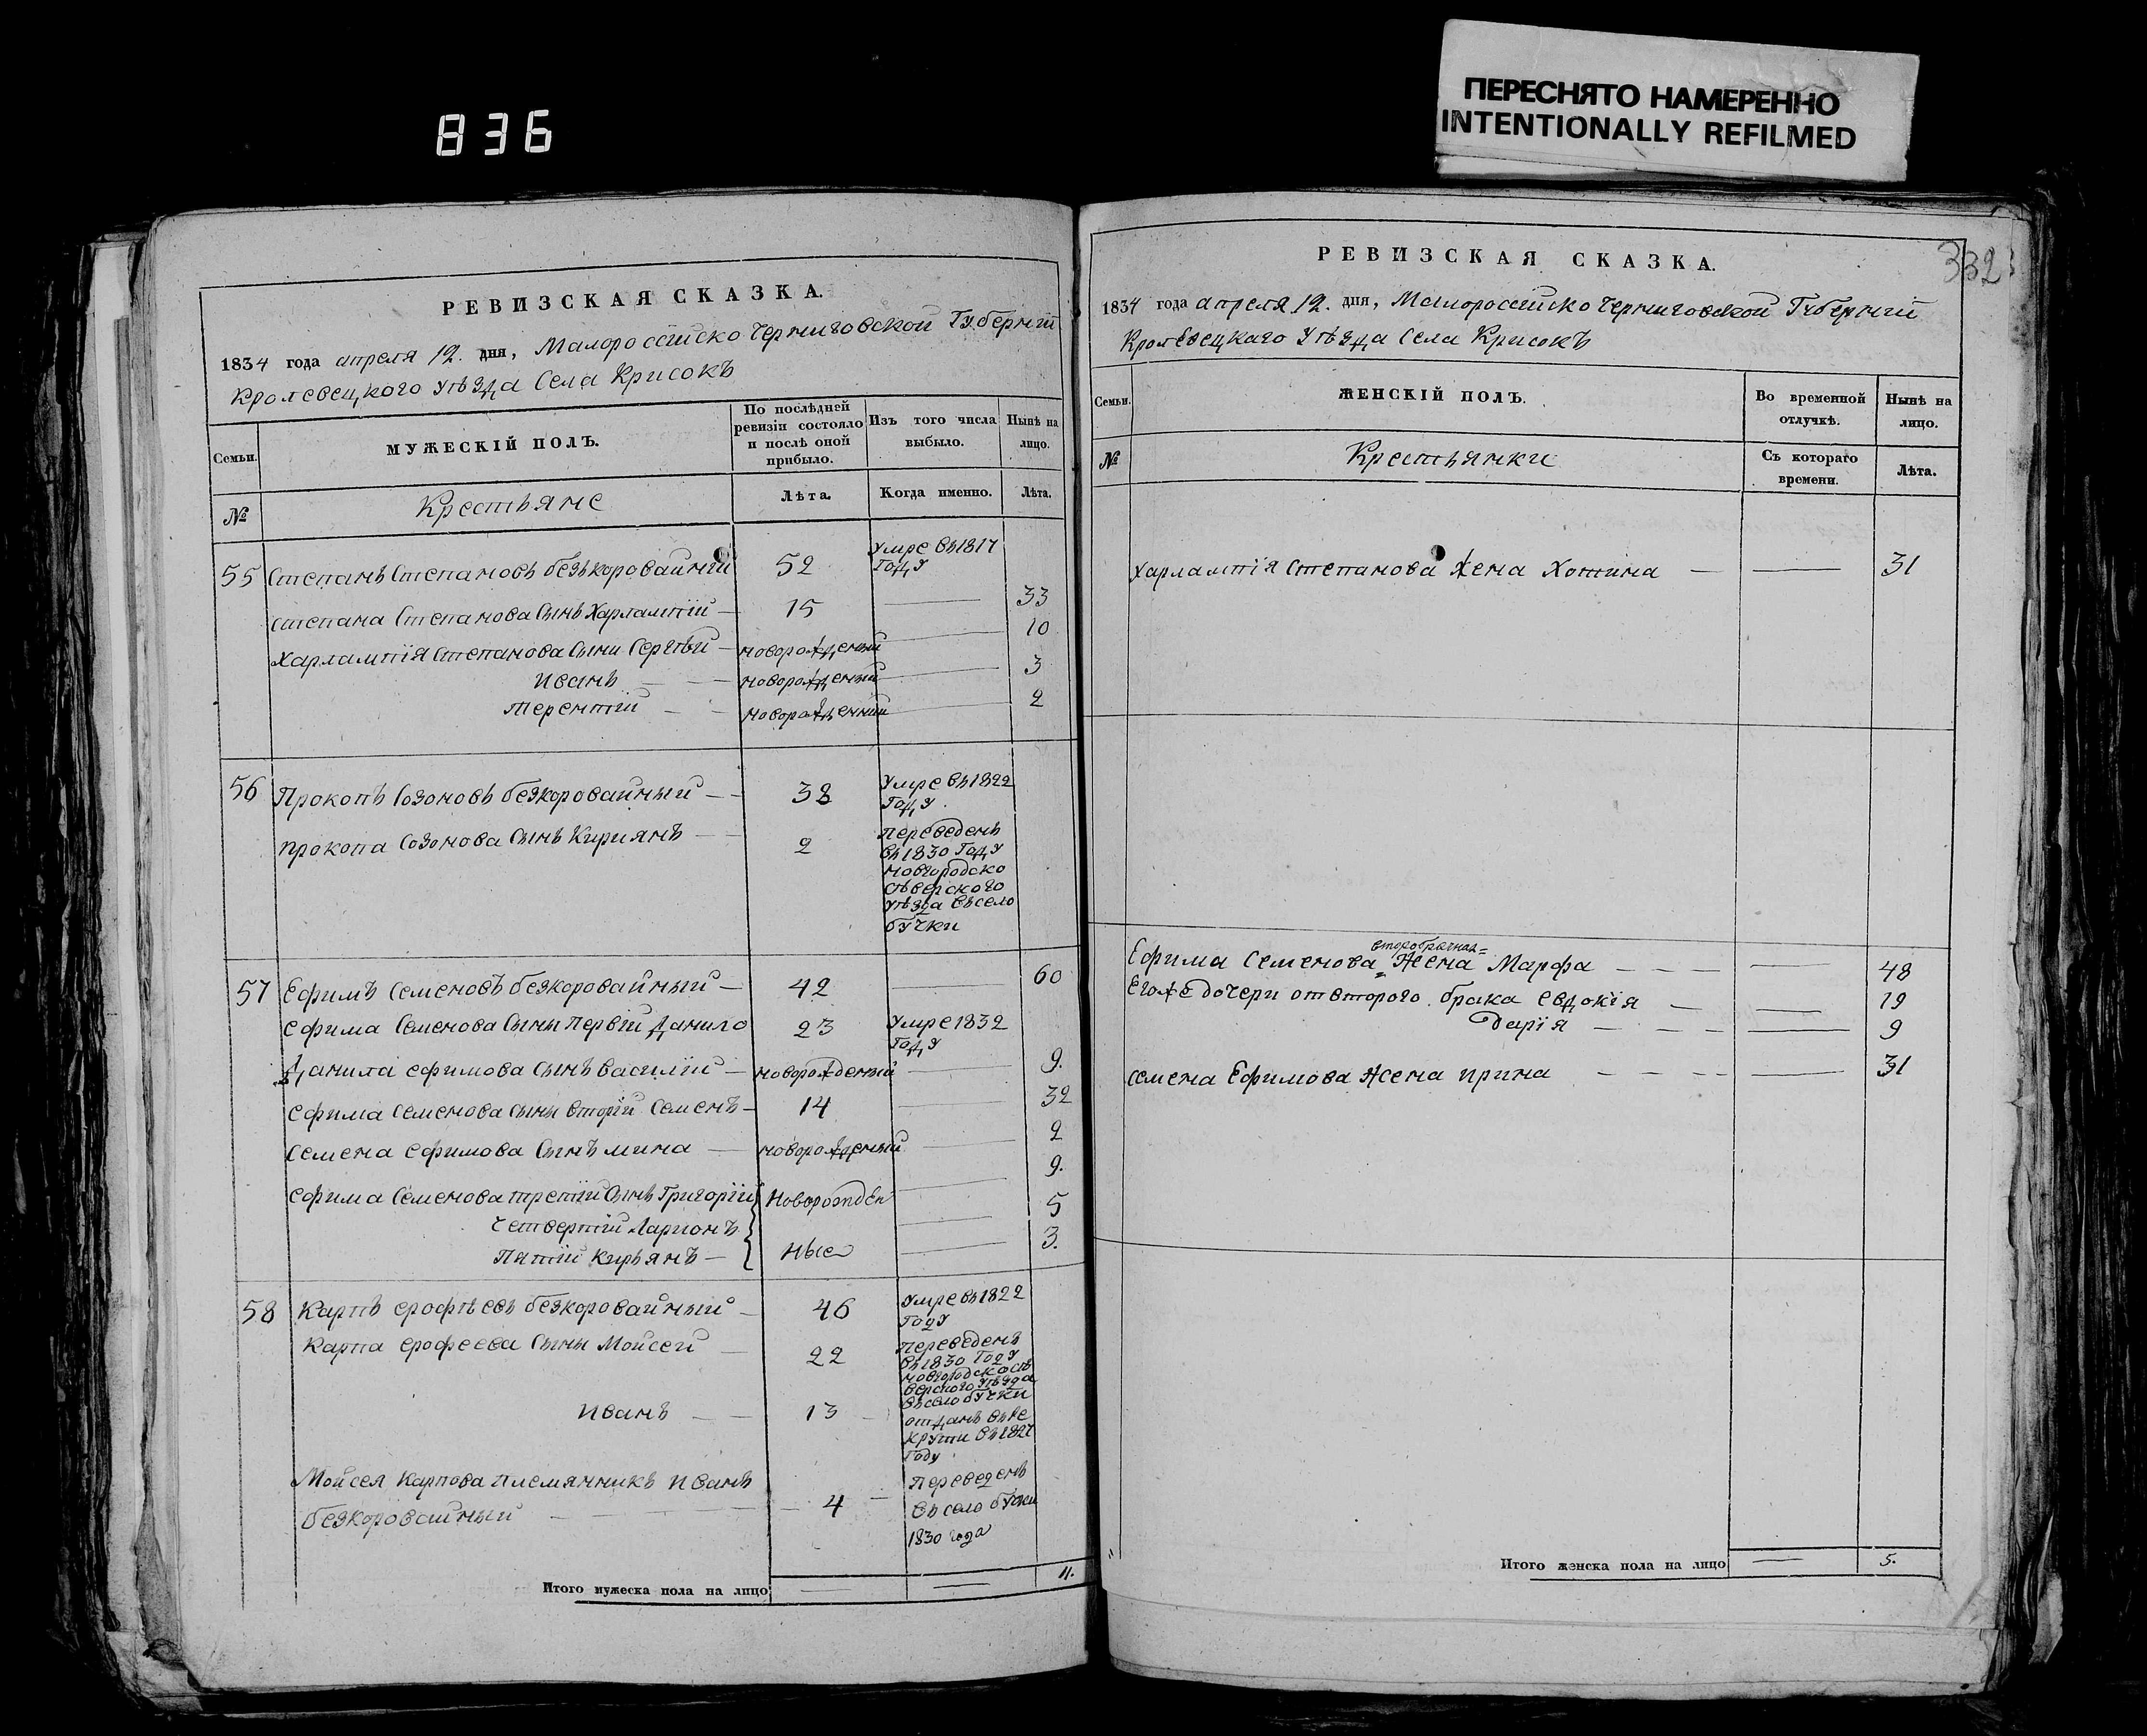 836
ПЕРЕСНЯТО НАМЕРЕННО
INTENTIONALLY REFILMED
РЕВИЗСКАЯ СКАЗКА.
1834 года апреля 12. дня, Малоросейско Черниговской Губернѣи
Кролевецкого уѣзда Села Крисокъ
Семьи.
МУЖЕСКІЙ ПОЛЪ.
По послѣдней ревизіи состояло и послѣ оной прибыло.
Изъ того числа выбыло.
Нынѣ на лицо.
№
Крестьяне
Лѣта.
Когда именно.
Лѣта.
55 Степанъ Степановъ безъкоровайній 52 Умре въ 1817 Году
степана Степанова Сынъ Харлампій — 15 — 33
Харлампія Степанова Сыни Сергѣй — новорожденый — 10
Иванъ — — новорожденый — 3
Терентій — — новорожденний — 2
56 Прокопъ Созоновъ безкоровайный — — 38 Умре въ 1822 Году.
прокопа Созонова Сынъ Кириянъ — — 2 Переведенъ
въ 1830 Году
новгородско
сѣверского
уѣзда въ село
бучки
57 Ефимъ Семеновъ безкоровайный — 42 — 60
ефима Семенова Сыны Первій Данило 23 Умре 1832 Году
Данила ефимова Сынъ Василій — новорожденый — 9.
ефима Семенова Сыны вторій Семенъ — 14 — 32
Семена ефимова Сынъ мина — новорожденый — 2
ефима Семенова третій Сынъ Григорій Новорожден — 9.
Четвертій Ларионъ — 5
Пятій Кирьянъ — ные — 3.
58 Карпъ ерофѣевъ безкоровайный — 46 Умре въ 1822 Году
Карпа ерофеева Сыны Мойсей — 22 Переведенъ
въ 1830 Году
новгородско сѣ
верского уѣзда
въ село бучки
Иванъ — — 13 — отданъ въ ре
круты въ 1827
Году
Мойсея Карпова племянникъ Иванъ
безкоровайный — — — 4 — Переведенъ
въ село бучки
1830 года
Итого мужеска пола на лицо — — 11.
РЕВИЗСКАЯ СКАЗКА.
332
1834 года апреля 12. дня, Малоросейско Черниговской Губерніи
Кролевецкаго Уѣзда Села Крисокъ
Семьи.
ЖЕНСКІЙ ПОЛЪ.
Во временной отлучкѣ.
Нынѣ на лицо.
№
Крестьянки
Съ котораго времени.
Лѣта.
Харлампія Степанова Жена Хотина — — 31
второбрачная
Ефима Семенова Жена Марфа — — — 48
Его же дочери от второго брака евдокія — — 19
Дарія — — — 9
Семена Ефимова Жена Ирина — — — 31
Итого женска пола на лицо — 5.